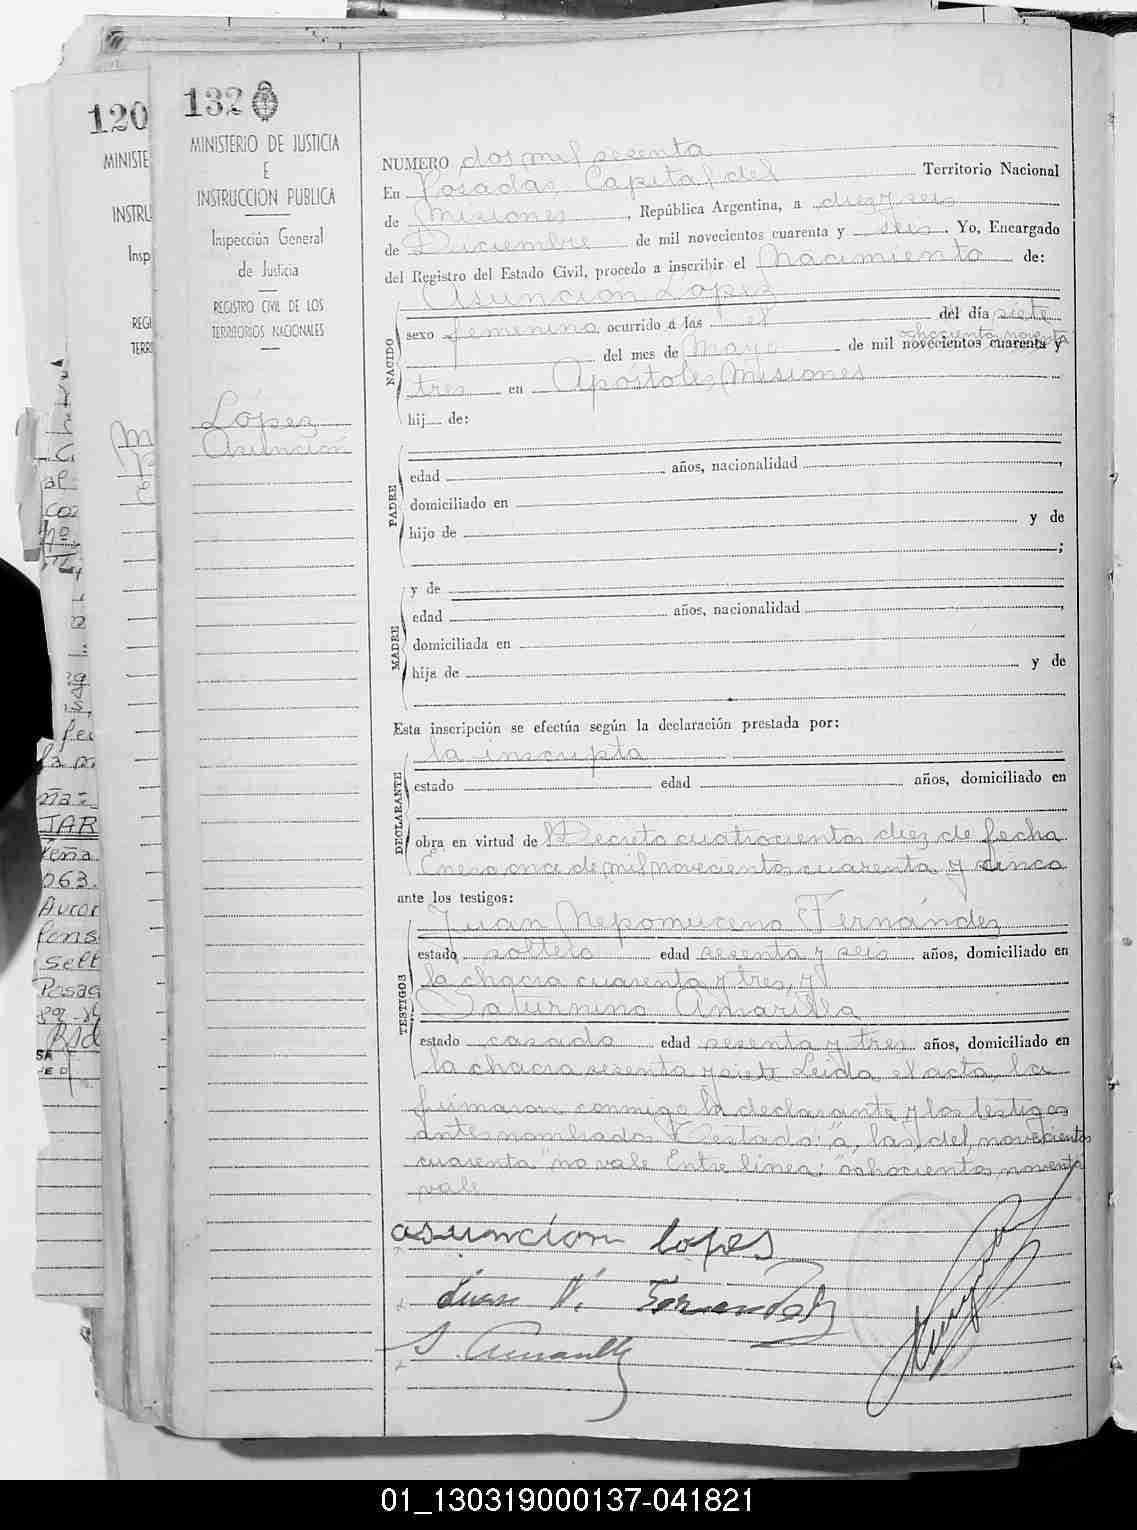 120
MINISTE
INSTRU
Insp
REGI
TERR
132
MINISTERIO DE JUSTICIA
E
INSTRUCCION PUBLICA
Inspección General
de Justicia
REGISTRO CIVIL DE LOS
TERRITORIOS NACIONALES
López
Asunción
NUMERO dos mil sesenta
En Posadas, Capital del Territorio Nacional
de Misiones, República Argentina, a diez y seis
de Diciembre de mil novecientos cuarenta y seis. Yo, Encargado
del Registro del Estado Civil, procedo a inscribir el Nacimiento de:
Asunción López
NACIDO
sexo femenino ocurrido a las el del día siete
ochocientos noventa
del mes de Mayo de mil novecientos cuarenta y
tres en Apóstoles, Misiones
hij de:
PADRE
edad años, nacionalidad
domiciliado en
hijo de y de
;
MADRE
y de
edad años, nacionalidad
domiciliada en
hija de y de
Esta inscripción se efectúa según la declaración prestada por:
DECLARANTE
la inscripta
estado edad años, domiciliado en
obra en virtud de Decreto cuatrocientos diez de fecha
Enero once de mil novecientos cuarenta y cinco
ante los testigos:
TESTIGOS
Juan Nepomuceno Fernández
estado soltero edad sesenta y seis años, domiciliado en
la chacra cuarenta y tres, y
Saturnino Amarilla
estado casado edad sesenta y tres años, domiciliado en
la chacra sesenta y siete Leida el acta, la
firmaron conmigo la declarante y los testigos
antes nombrados Testado: "a, las, del, novecientos
cuarenta" no vale. Entre linea: "ochocientos noventa
vale
asuncion lopes
Juan N. Fernandez
S. Amarilla
ña-
TAR
063.
Posad
01_130319000137-041821